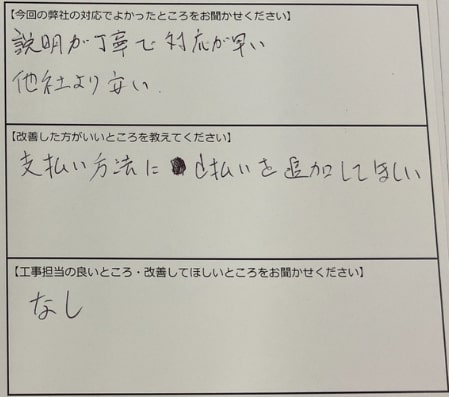 【今回の弊社の対応でよかったところをお聞かせください】
説明が丁寧で対応が早い
他社より安い
【改善した方がいいところを教えてください】
支払い方法にd払いを追加してほしい
【工事担当の良いところ・改善してほしいところをお聞かせください】
なし